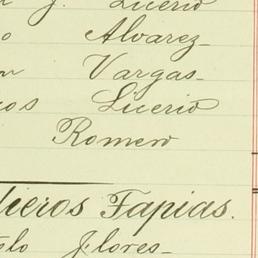 J. Licerio
o Alvarez
Vargas
cos Licerio
Romero
lieros Tapias.
lo Flores